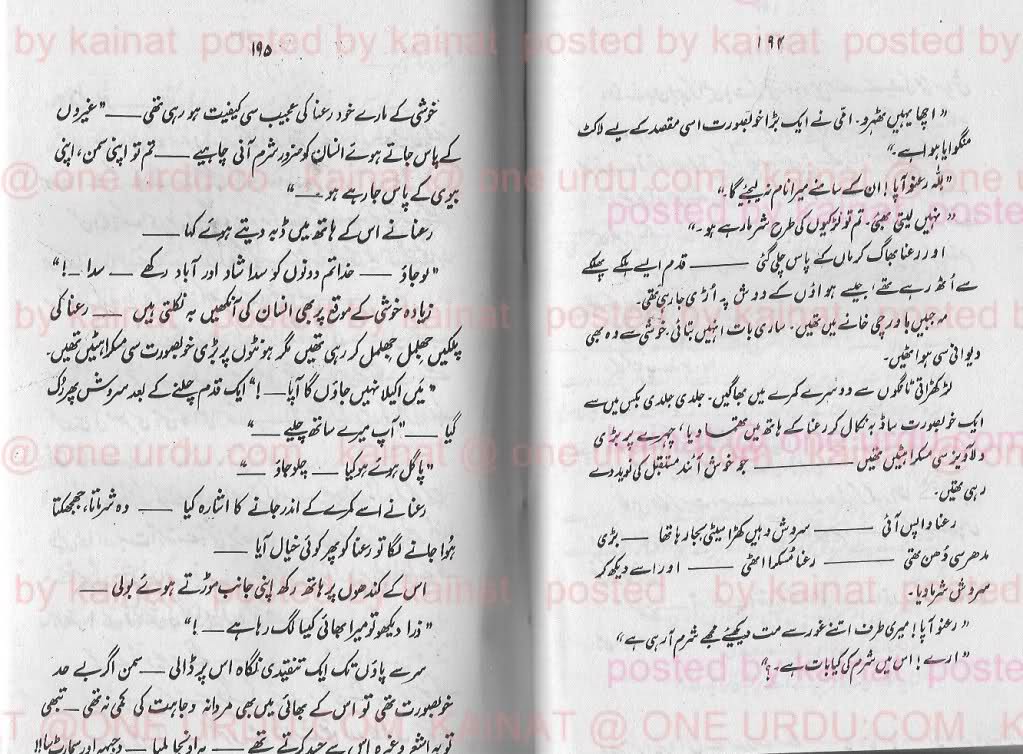 ۱۹۴
"اچھا یہیں ٹھہرو۔ امّی نے ایک بڑا خوبصورت اسی مقصد کے لیے لاکٹ
منگوایا ہوا ہے۔"
"بلّہ رعنو آپا! ان کے سامنے میرا نام نہ لیجئے گا۔"
"نہیں لیتی بھئی۔ تم تو لڑکیوں کی طرح شرما رہے ہو۔"
اور رعنا بھاگ کر ماں کے پاس چلی گئی ـــــ قدم ایسے ہلکے پھلکے
سے اُٹھ رہے تھے، جیسے ہواؤں کے دوش پہ اُڑی جا رہی تھی۔
مہ جبیں باورچی خانے میں تھیں۔ ساری بات انہیں بتائی۔ خوشی سے وہ بھی
دیوانی سی ہو اٹھیں۔
لڑکھڑاتی ٹانگوں سے دوسرے کمرے میں بھاگیں۔ جلدی جلدی بکس میں سے
ایک خوبصورت سا ڈبہ نکال کر رعنا کے ہاتھ میں تھما دیا، چہرے پر بڑی
دلآویز سی مسکراہٹیں تھیں ـــــ جو خوش آئند مستقبل کی نوید دے
رہی تھیں۔
رعنا واپس آئی ـــــ سروش وہیں کھڑا سیٹی بجا رہا تھا ـــ بڑی
مدھر سی دُھن تھی ـــــ رعنا مُسکرا اٹھی ـــــ اور اسے دیکھ کر
سروش شرما دیا۔
"رعنو آپا! میری طرف اتنے غور سے مت دیکھئے مجھے شرم آ رہی ہے"
"ارے! اس میں شرم کی کیا بات ہے۔؟"
۱۹۵
خوشی کے مارے خود رعنا کی عجیب سی کیفیت ہو رہی تھی ـــــ "غیروں
کے پاس جاتے ہوئے انسان کو ضرور شرم آنی چاہیے ـــــ تم تو اپنی سمن، اپنی
بیوی کے پاس جا رہے ہو ـــ"
رعنا نے اس کے ہاتھ میں ڈبہ دیتے ہوئے کہا ـــــ
"لو جاؤ ـــــ خدا تم دونوں کو سدا شاد اور آباد رکھے ـــ سدا ـــ!"
زیادہ خوشی کے موقع پر بھی انسان کی آنکھیں بہ نکلتی ہیں ـــــ رعنا کی
پلکیں جھلمل جھلمل کر رہی تھیں مگر ہونٹوں پر بڑی خوبصورت سی مسکراہٹیں تھیں۔
"میں اکیلا نہیں جاؤں گا آپا ـــ!" ایک قدم چلنے کے بعد سروش پھر رُک
گیا ـــــ "آپ میرے ساتھ چلیے ـــــ"
"پاگل ہوئے ہو کیا ـــــ چلو جاؤ ـــ"
رعنا نے اسے کمرے کے اندر جانے کا اشارہ کیا ـــــ وہ شرماتا، جھجھکتا
ہُوا جانے لگا تو رعنا کو پھر کوئی خیال آیا ـــــ
اس کے کندھوں پر ہاتھ رکھ اپنی جانب موڑتے ہوئے بولی ـــــ
"ذرا دیکھو تو میرا بھائی کیسا لگ رہا ہے ـــ!"
سر سے پاؤں تک ایک تنقیدی نگاہ اس پر ڈالی ـــــ سمن اگر بے حد
خوبصورت تھی تو اس کے بھائی میں بھی مردانہ وجاہت کی کمی نہ تھی ـــــ تبھی
by kainat posted by kainat posted by kainat posted by
@ one urdu.co @ one urdu.com @ one
posted by kainat posted
by kainat posted by kainat posted by kainat posted by
@ one urdu.com @ one urdu.com @ one
by kainat posted by kainat posted by kainat
posted by kainat posted
T @ ONE URDU.COM KAINAT @ ONE URDU.COM